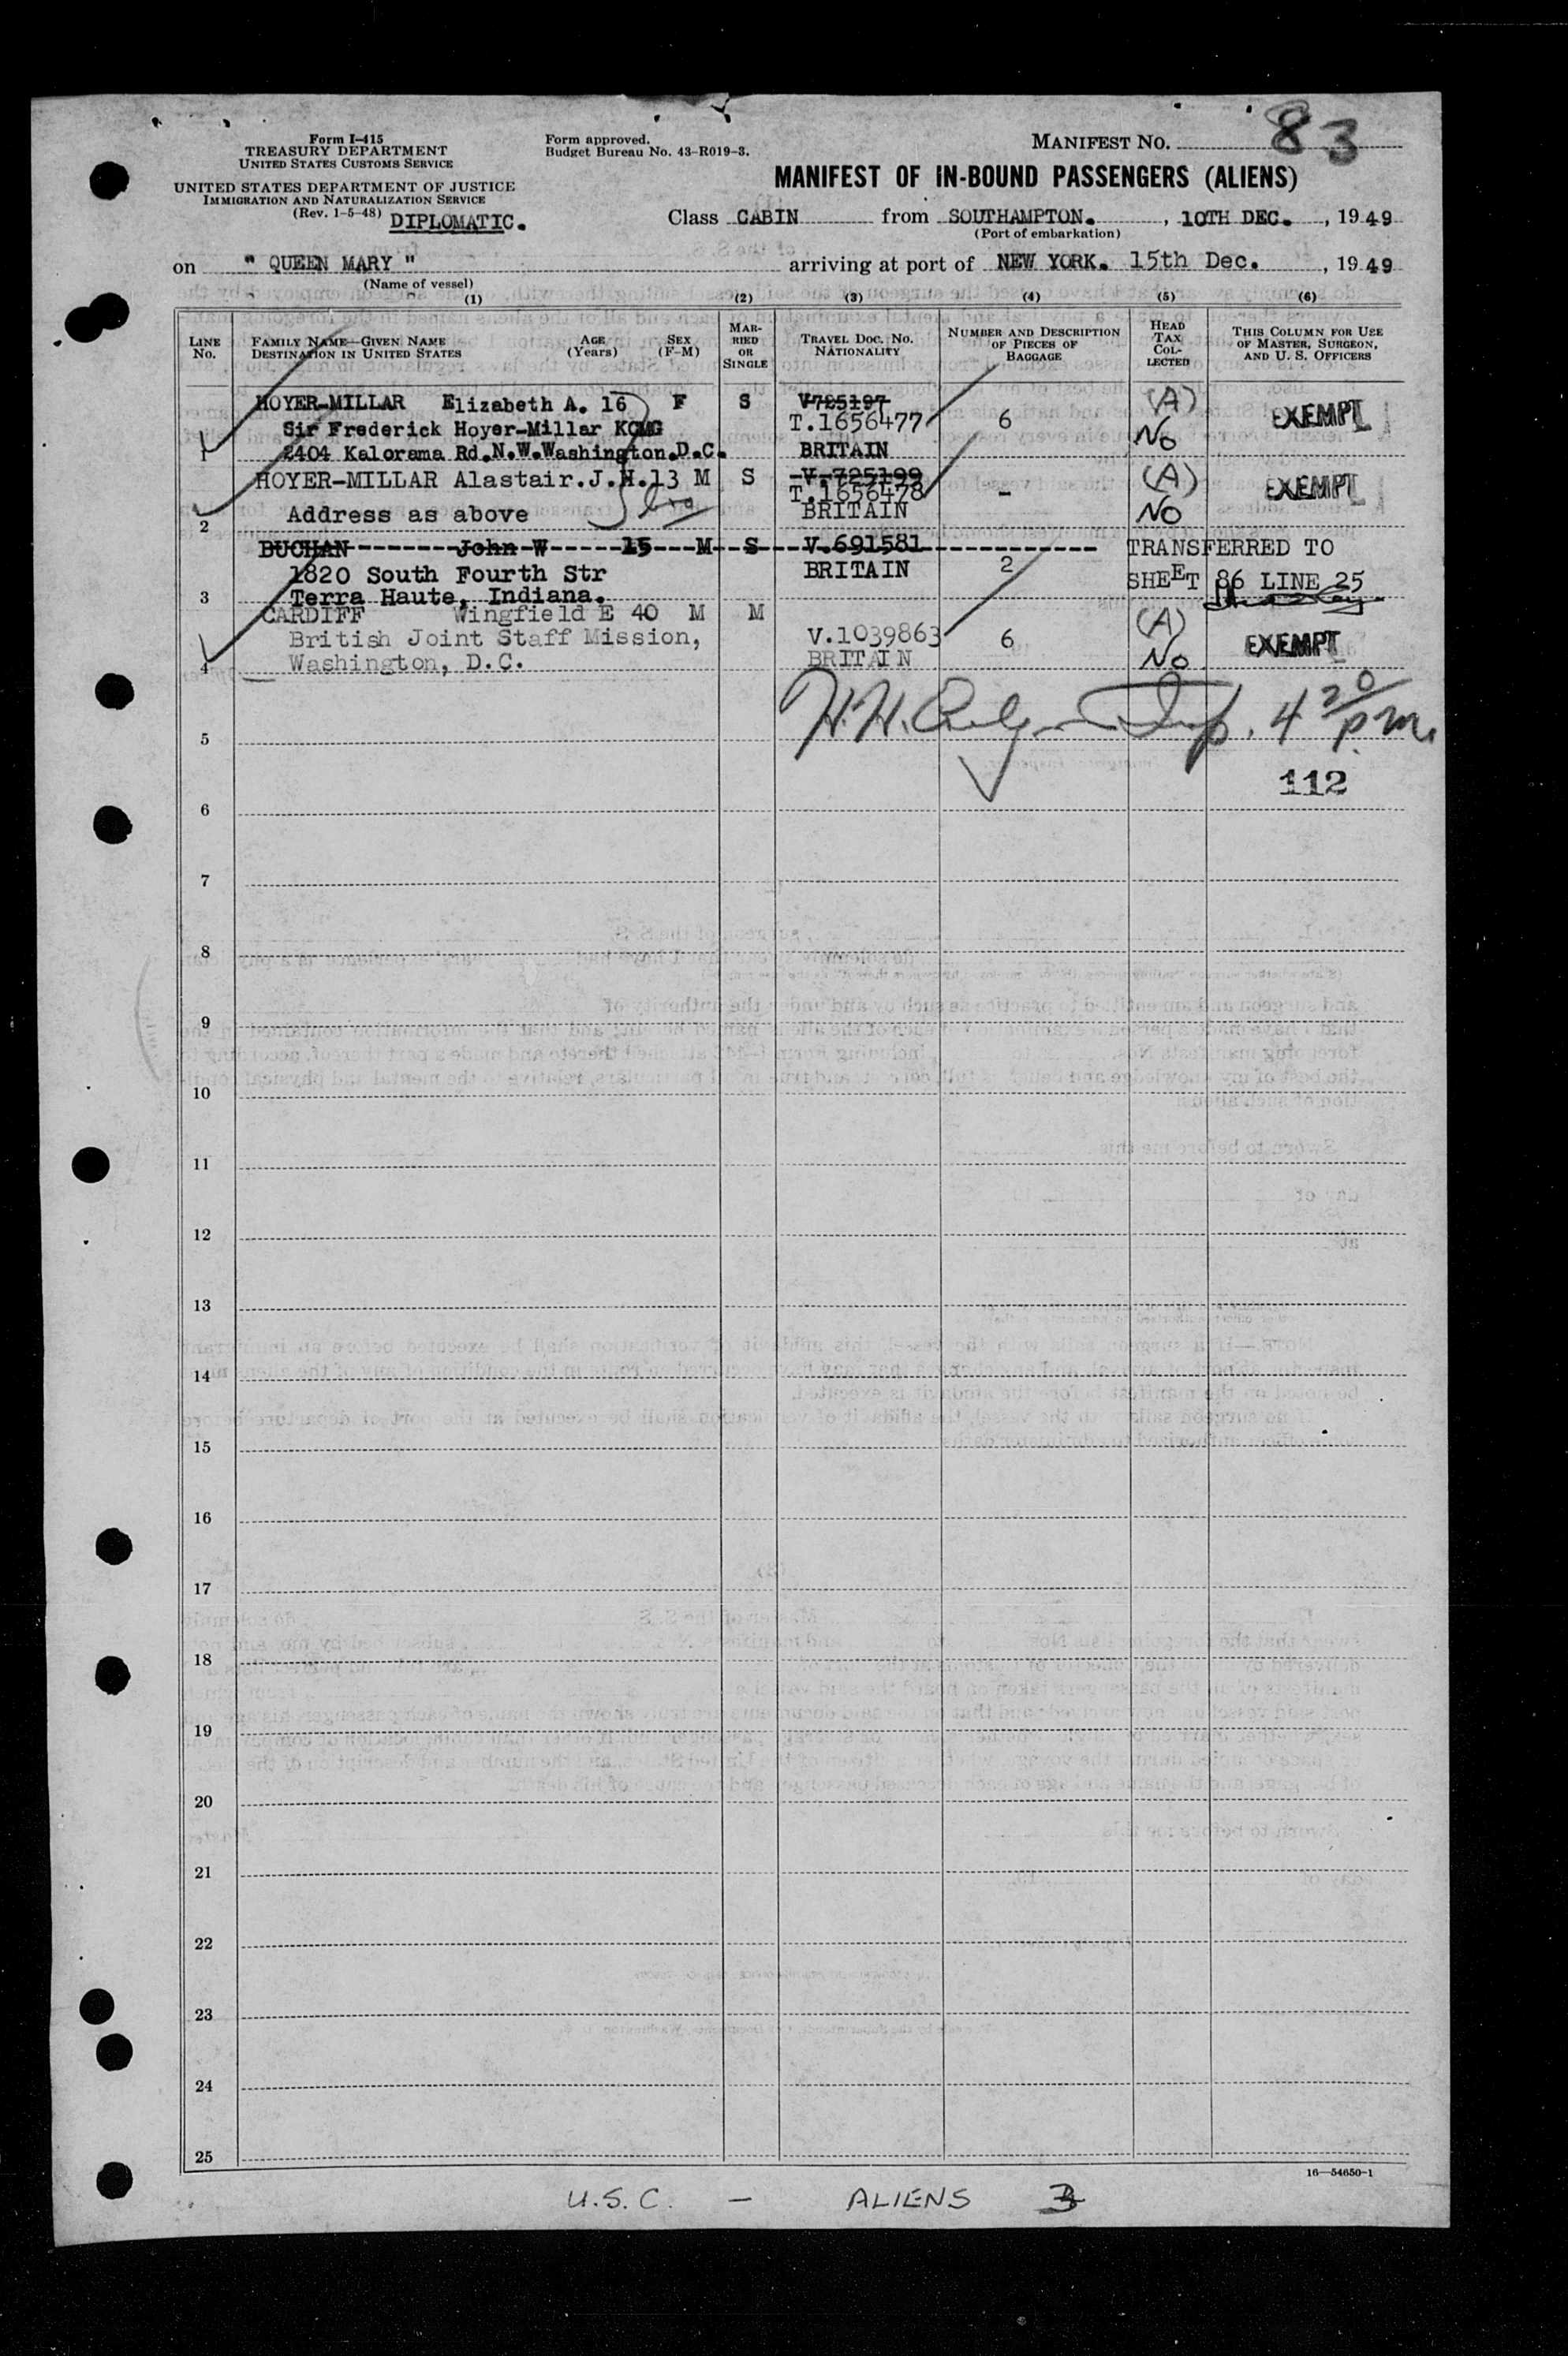 Form I-415
TREASURY DEPARTMENT
UNITED STATES CUSTOMS SERVICE
Form approved.
Budget Bureau No. 43-R019-3.
MANIFEST NO. 83
UNITED STATES DEPARTMENT OF JUSTICE
IMMIGRATION AND NATURALIZATION SERVICE
(Rev. 1-5-48) DIPLOMATIC.
MANIFEST OF IN-BOUND PASSENGERS (ALIENS)
Class CABIN from SOUTHAMPTON. , 10TH DEC. , 1949
(Port of embarkation)
on " QUEEN MARY " arriving at port of NEW YORK. 15th Dec. , 1949
(Name of vessel)
(1) (2) (3) (4) (5) (6)
LINE No. FAMILY NAME—GIVEN NAME DESTINATION IN UNITED STATES AGE (Years) SEX (F-M) MARRIED OR SINGLE TRAVEL DOC. NO. NATIONALITY NUMBER AND DESCRIPTION OF PIECES OF BAGGAGE HEAD TAX COLLECTED THIS COLUMN FOR USE OF MASTER, SURGEON, AND U. S. OFFICERS
HOYER-MILLAR Elizabeth A. 16 F S V725197 (A)
Sir Frederick Hoyer-Millar KCMG T.1656477 6 EXEMPT
1 2404 Kalorama Rd.N.W.Washington.D.C. BRITAIN No
HOYER-MILLAR Alastair.J.H.13 M S V.725199 (A) EXEMPT
T.1656478 -
2 Address as above BRITAIN No
BUCHAN John W 15 M S V.691581 TRANSFERRED TO
1820 South Fourth Str BRITAIN 2 SHEET 86 LINE 25
3 Terra Haute, Indiana.
CARDIFF Wingfield E 40 M M (A)
British Joint Staff Mission, V.1039863 6 EXEMPT
4 Washington, D.C. BRITAIN No
H.H. Insp. 4 20 p.m.
5
112
6
7
8
9
10
11
12
13
14
15
16
17
18
19
20
21
22
23
24
25
16—54650-1
U.S.C. — ALIENS 3